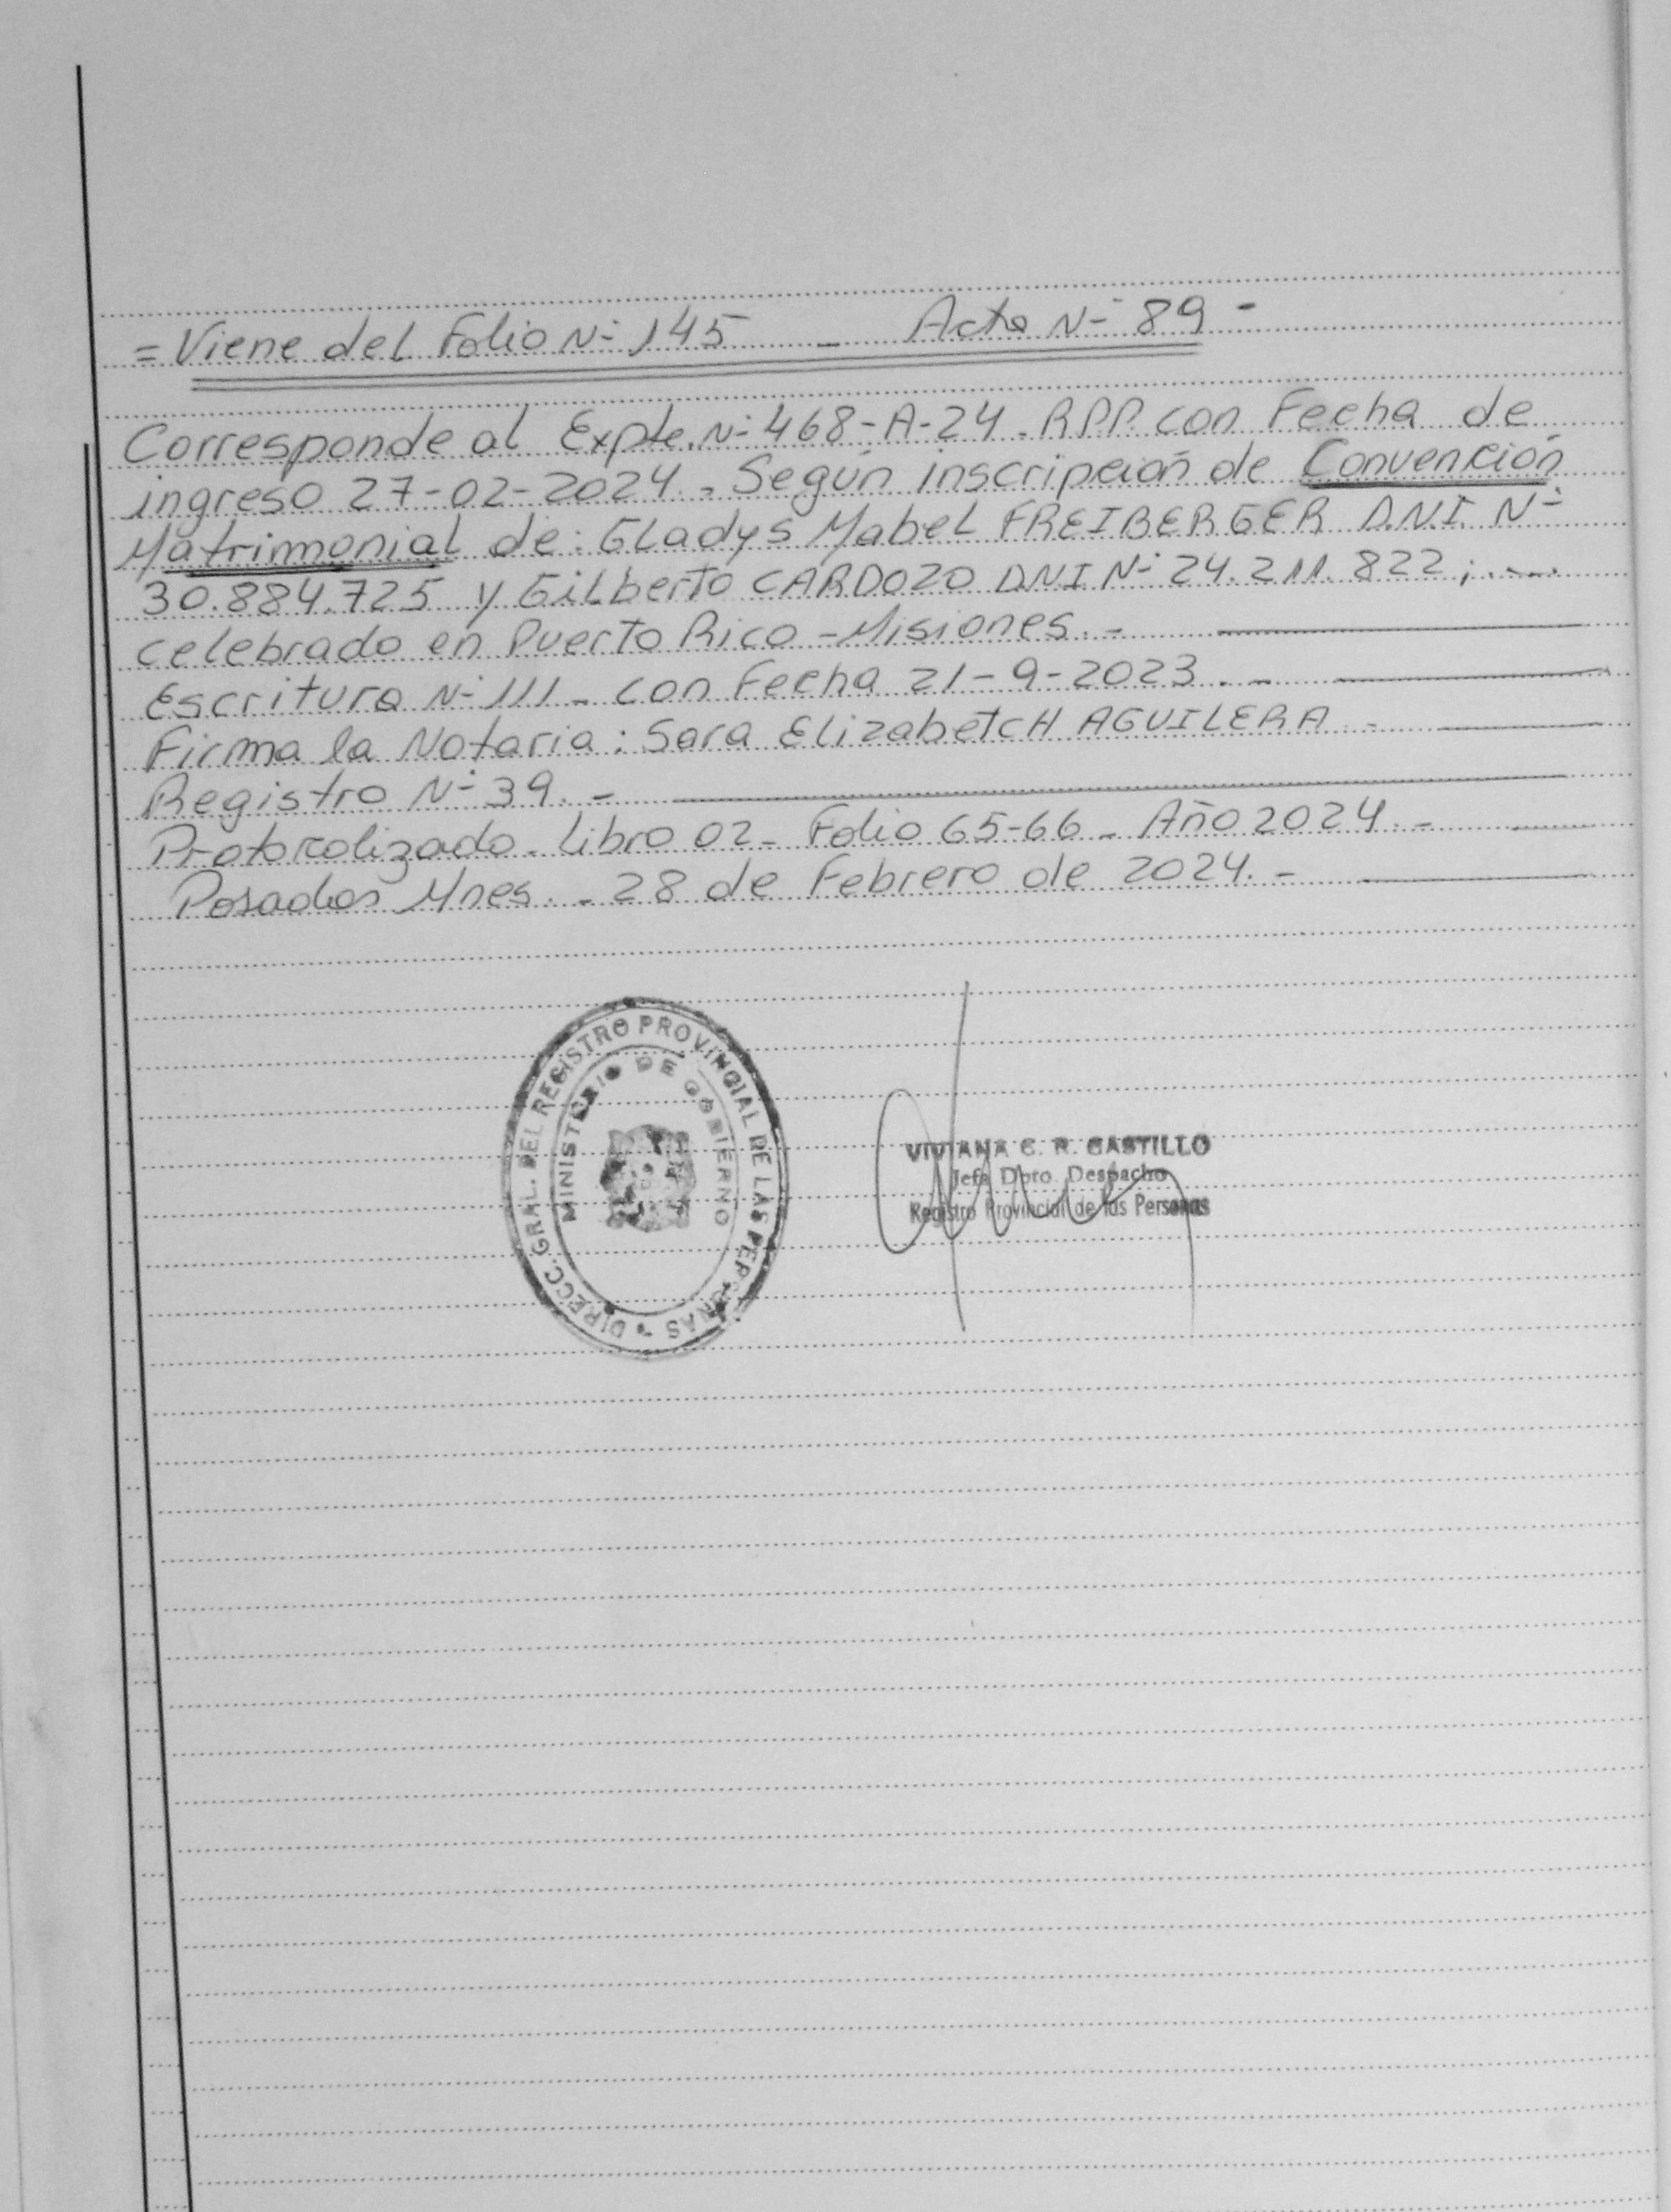 = Viene del Folio N- 145 - Acta N- 89 -
Corresponde al Expte. N- 468-A-24. R.P.P. con Fecha de
ingreso 27-02-2024.- Según inscripción de Convención
Matrimonial de: Gladys Mabel FREIBERGER D.N.I. N-
30.884.725 y Gilberto CARDOZO DNI N- 24.211.822;.-
celebrado en Puerto Rico - Misiones.-
Escritura N- 111 - con Fecha 21-9-2023.-
Firma la Notaria: Sara ElizabetcH AGUILERA.-
Registro N- 39.-
Protocolizado. Libro 02- Folio 65-66 - Año 2024.-
Posadas Mnes.- 28 de Febrero de 2024.-
DIRECC. GRAL. DEL REGISTRO PROVINCIAL DE LAS PERSONAS
MINISTERIO DE GOBIERNO
VIVIANA C. R. CASTILLO
Jefa Dpto. Despacho
Registro Provincial de las Personas